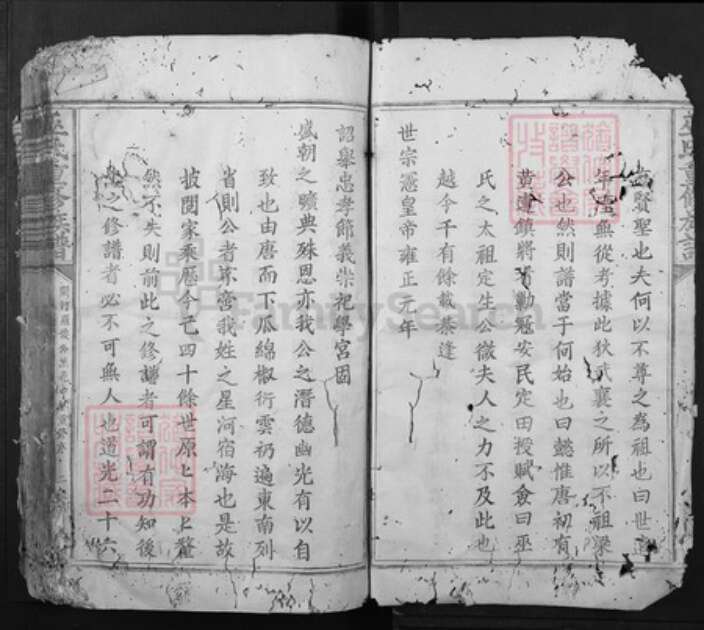 古賢聖也夫何以不尊之為祖也曰世遠
年湮無從考據此狄武襄之所以不祖梁
公也然則譜當于何始也曰懿惟唐初有
黄連鎮將諱勳冠安民定田授賦僉曰巫
氏之太祖定生公微夫人之力不及此也
越今千有餘載恭逢
世宗憲皇帝雍正元年
詔舉忠孝節義崇祀學宮固
盛朝之曠典殊恩亦我公之潛德幽光有以自
致也由唐而下瓜綿椒衍雲礽遍東南列
省則公者不啻我姓之星河宿海也是故
披閱家乘歷今已四十餘世原ヒ本ヒ釐
然不失則前此之修譜者可謂有功知後
此之修譜者必不可無人也道光二十六
巫氏重修族譜
FamilySearch